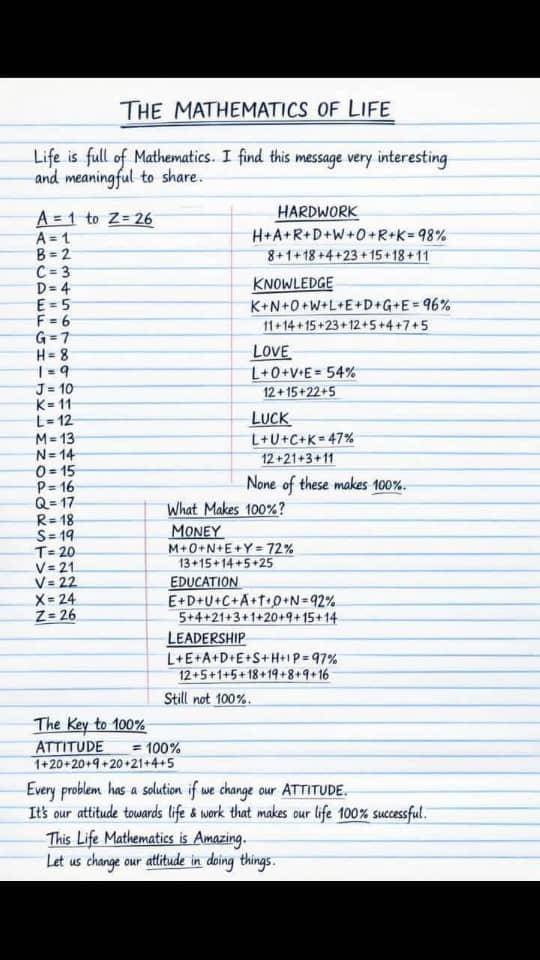 THE MATHEMATICS OF LIFE
Life is full of Mathematics. I find this message very interesting
and meaningful to share.
A = 1 to Z = 26
A = 1
B = 2
C = 3
D = 4
E = 5
F = 6
G = 7
H = 8
I = 9
J = 10
K = 11
L = 12
M = 13
N = 14
O = 15
P = 16
Q = 17
R = 18
S = 19
T = 20
V = 21
V = 22
X = 24
Z = 26
HARDWORK
H+A+R+D+W+O+R+K = 98%
8+1+18+4+23+15+18+11
KNOWLEDGE
K+N+O+W+L+E+D+G+E = 96%
11+14+15+23+12+5+4+7+5
LOVE
L+O+V+E = 54%
12+15+22+5
LUCK
L+U+C+K = 47%
12+21+3+11
None of these makes 100%.
What Makes 100%?
MONEY
M+O+N+E+Y = 72%
13+15+14+5+25
EDUCATION
E+D+U+C+A+T+I+O+N = 92%
5+4+21+3+1+20+9+15+14
LEADERSHIP
L+E+A+D+E+S+H+I P = 97%
12+5+1+5+18+19+8+9+16
Still not 100%.
The Key to 100%
ATTITUDE = 100%
1+20+20+9+20+21+4+5
Every problem has a solution if we change our ATTITUDE.
It's our attitude towards life & work that makes our life 100% successful.
This Life Mathematics is Amazing.
Let us change our attitude in doing things.